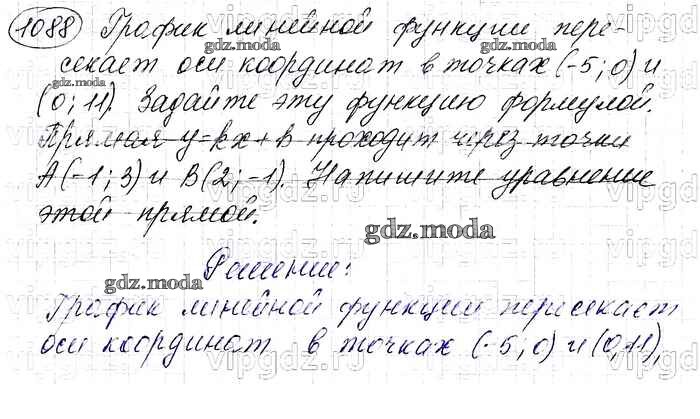 1088 График линейной функции пере-
секает оси координат в точках (-5; 0) и
(0; 11). Задайте эту функцию формулой.
Прямая y=kx+b проходит через точки
A(-1; 3) и B(2; -1). Напишите уравнение
этой прямой.
gdz.moda
gdz.moda
gdz.moda
gdz.moda
Решение:
График линейной функции пересекает
оси координат в точках (-5; 0) и (0, 11),